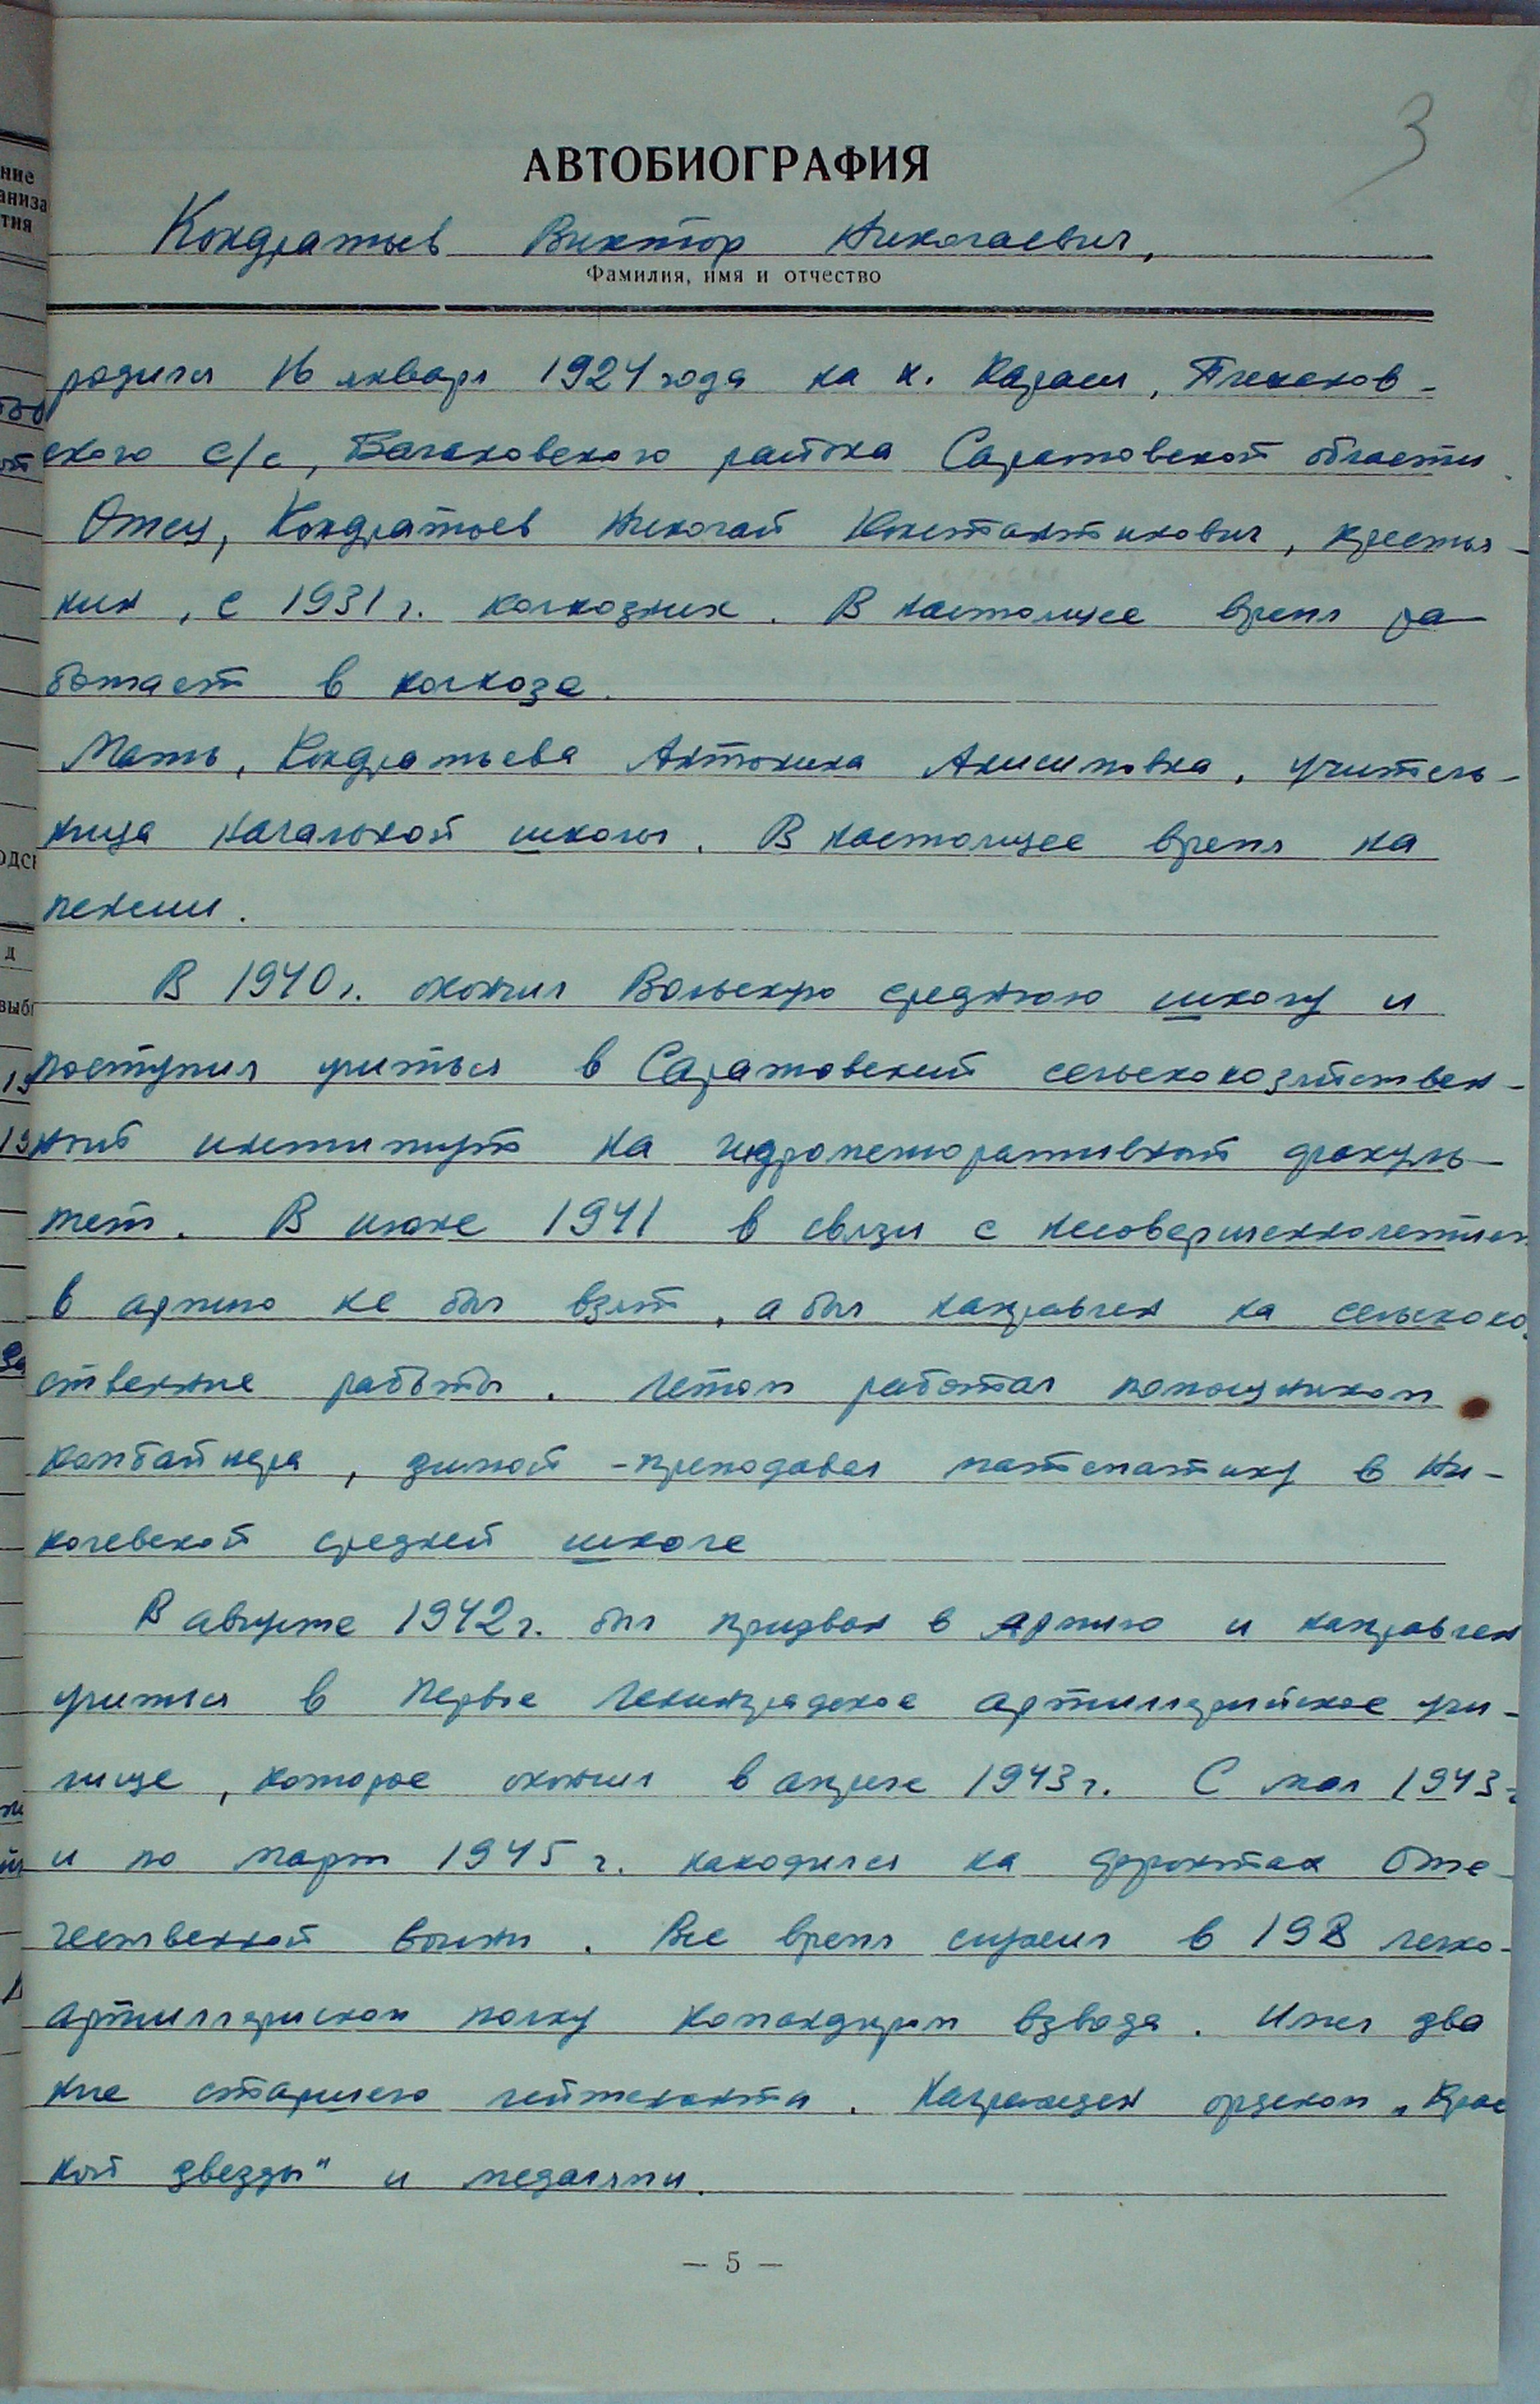 3
АВТОБИОГРАФИЯ
Кондратьев Виктор Николаевич,
Фамилия, имя и отчество
родился 16 января 1924 года на х.
ского с/с, Балаковского района Саратовской области.
Отец, Кондратьев Николай Константинович, крестья-
нин, с 1931 г. колхозник. В настоящее время ра-
ботает в колхозе.
Мать, Кондратьева Антонина Анисимовна, учитель-
ница начальной школы. В настоящее время на
пенсии.
В 1940 г. окончил Вольскую среднюю школу и
поступил учиться в Саратовский сельскохозяйствен-
ный институт на гидромелиоративный факуль-
тет. В июне 1941 в связи с несовершеннолетием
в армию не был взят, а был направлен на сельскохо
ственные работы. Летом работал помощником
комбайнера, зимой - преподавал математику в Ни-
колевской средней школе
В августе 1942 г. был призван в армию и направлен
учиться в Первое Ленинградское артиллерийское учи-
лище, которое окончил в апреле 1943 г. С мая 1943 г
и по март 1945 г. находился на фронтах Оте-
чественной войны. Все время служил в 198 легко-
артиллериском полку командиром взвода. Имел два
ние старшего лейтенанта. Награжден орденом „Крас
ной звезды" и медалями.
— 5 —